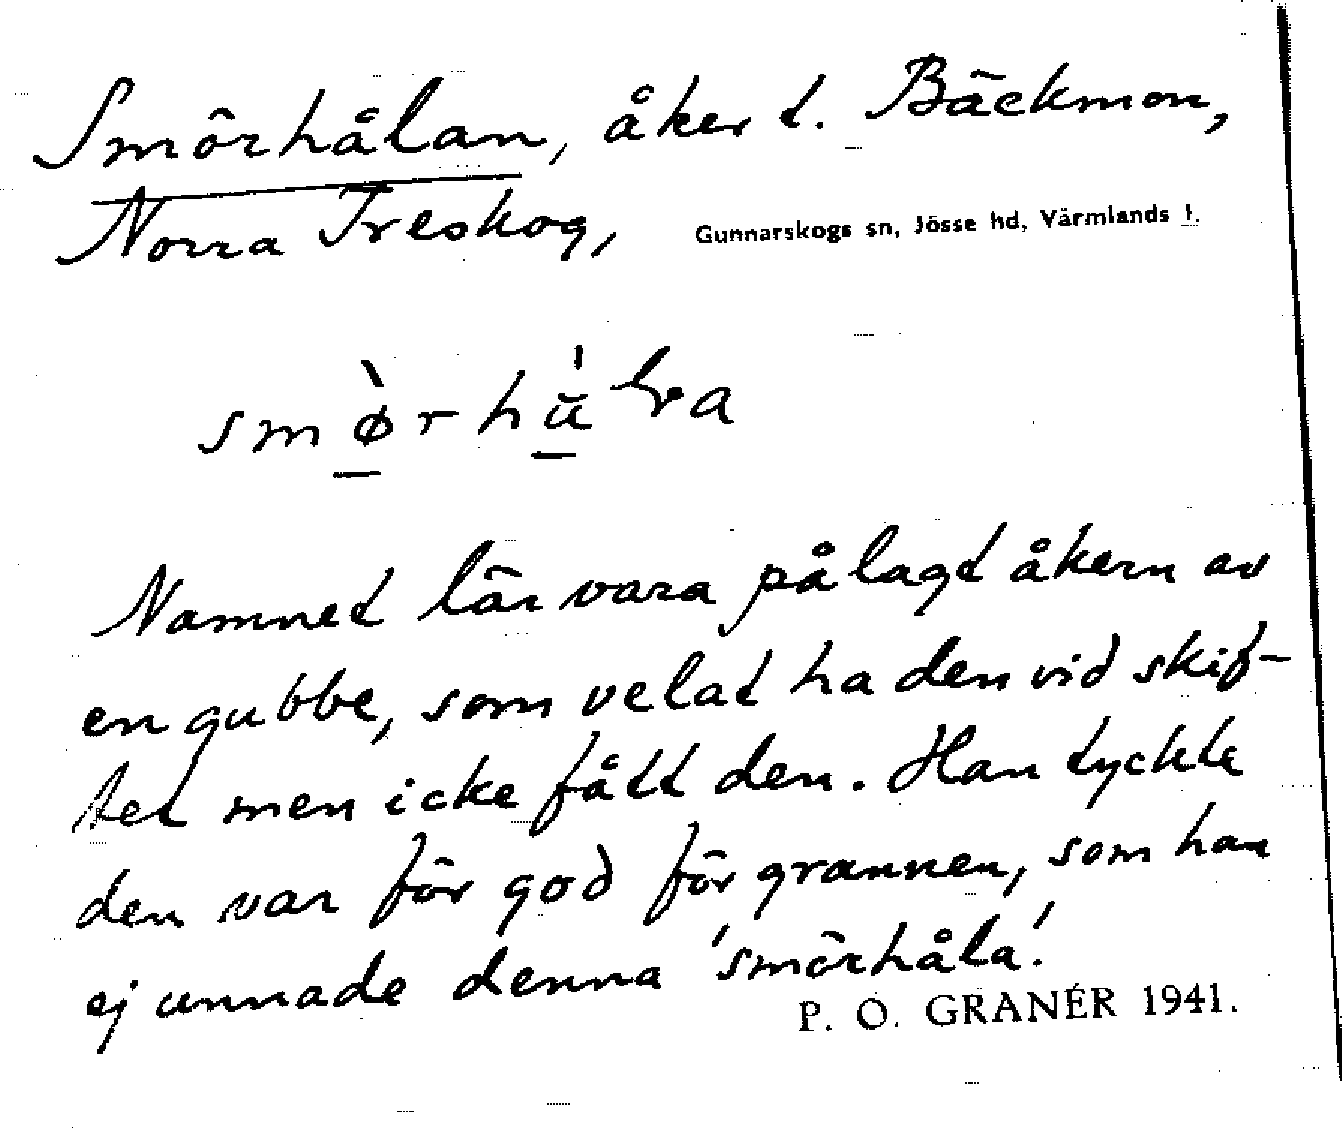 Smörhålan, åker t. Bäckmon,
Norra Treskog, Gunnarskogs sn, Jösse hd, Värmlands l.
Namnet lär vara pålagt åkern av
en gubbe, som velat ha den vid skif-
tet men icke fått den. Han tyckte
den var för god för grannen, som han
ej unnade denna 'smörhåla'.
P. O. GRANÉR 1941.